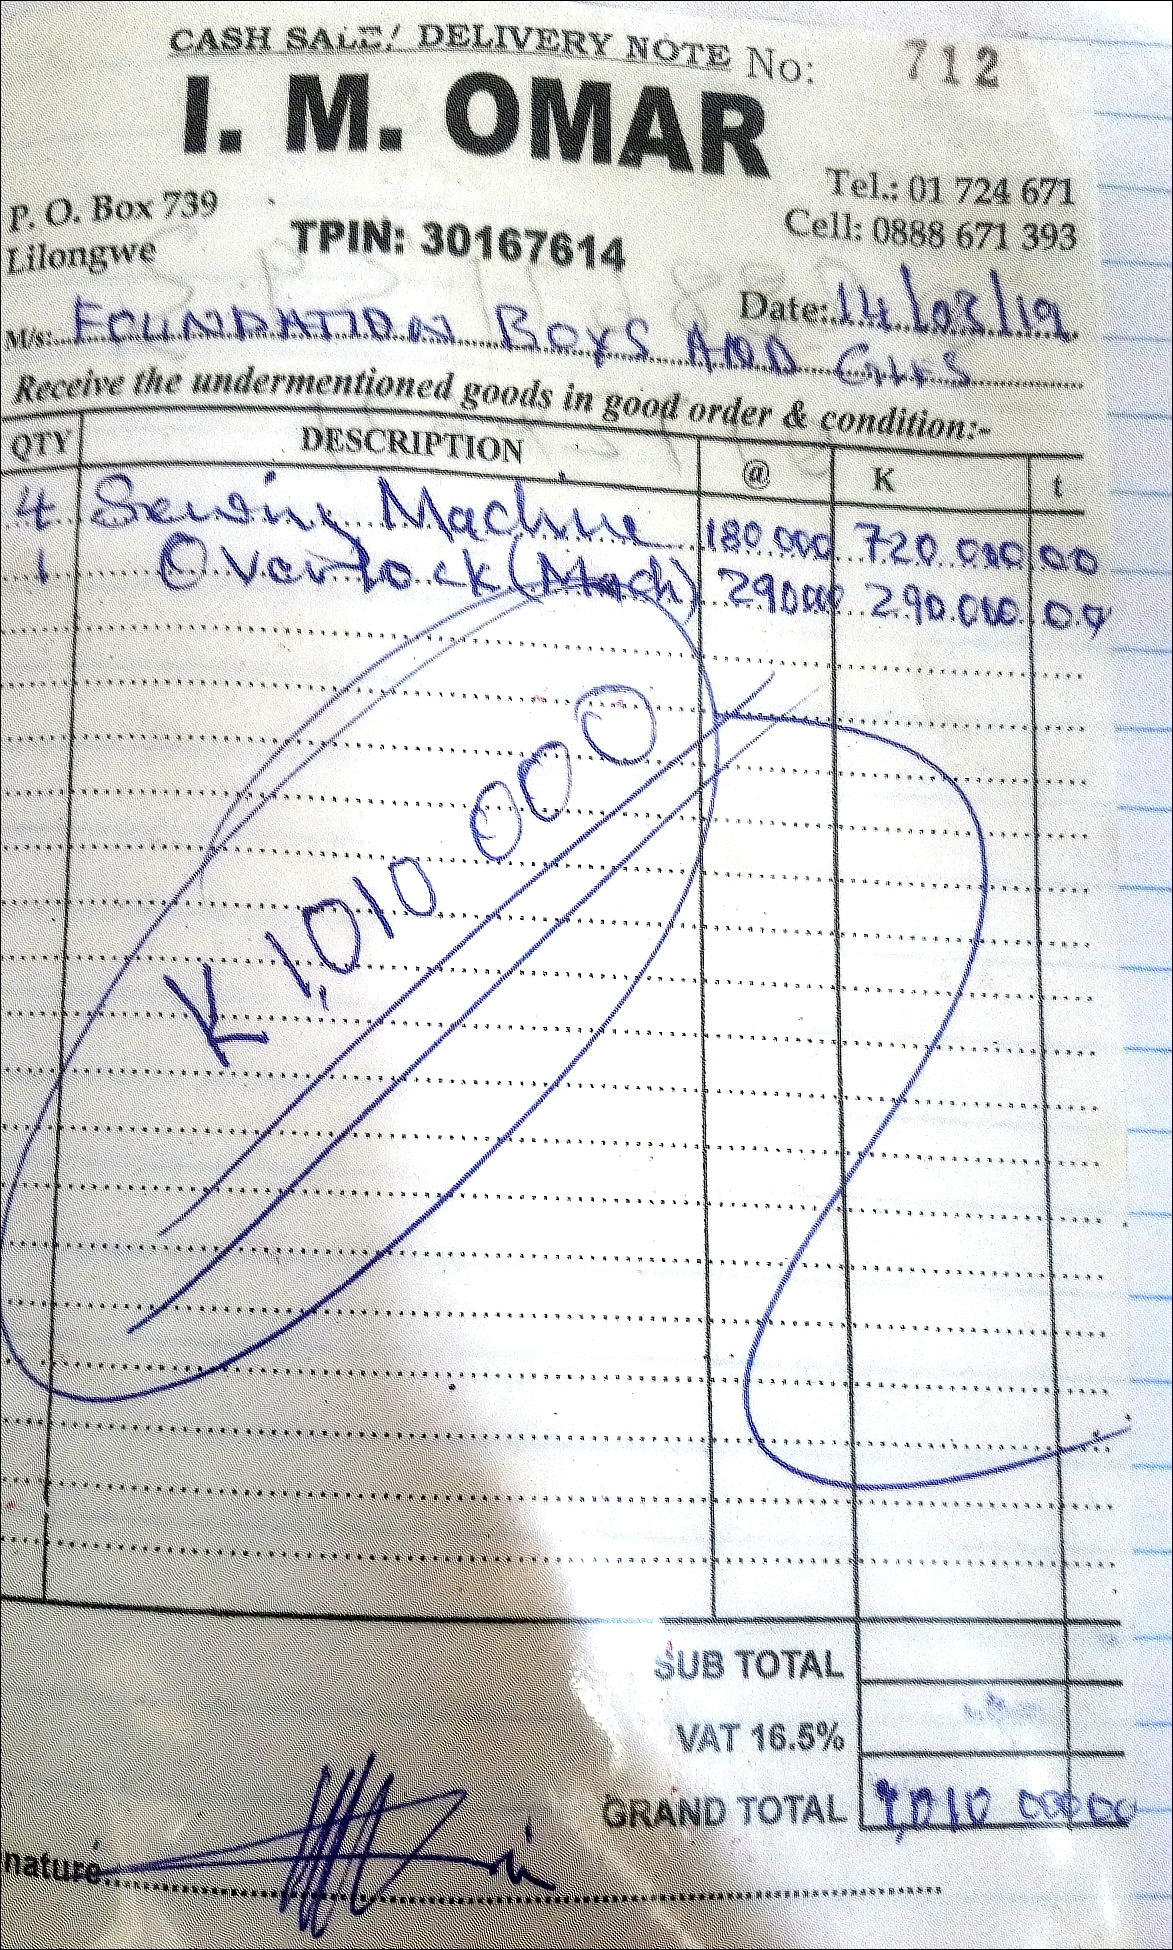 CASH SALE/ DELIVERY NOTE No: 712
I. M. OMAR
P. O. Box 739
Lilongwe
TPIN: 30167614
Tel.: 01 724 671
Cell: 0888 671 393
Date: 14/03/19
M/s: FOUNDATION BOYS AND GIRLS
Receive the undermentioned goods in good order & condition:-
QTY DESCRIPTION @ K t
4 Sewing Machine 180.000 720.000 00
1 Overlock (Mach) 290000 290.000 00
K 1,010 000
SUB TOTAL
VAT 16.5%
GRAND TOTAL 1,010 000 00
nature